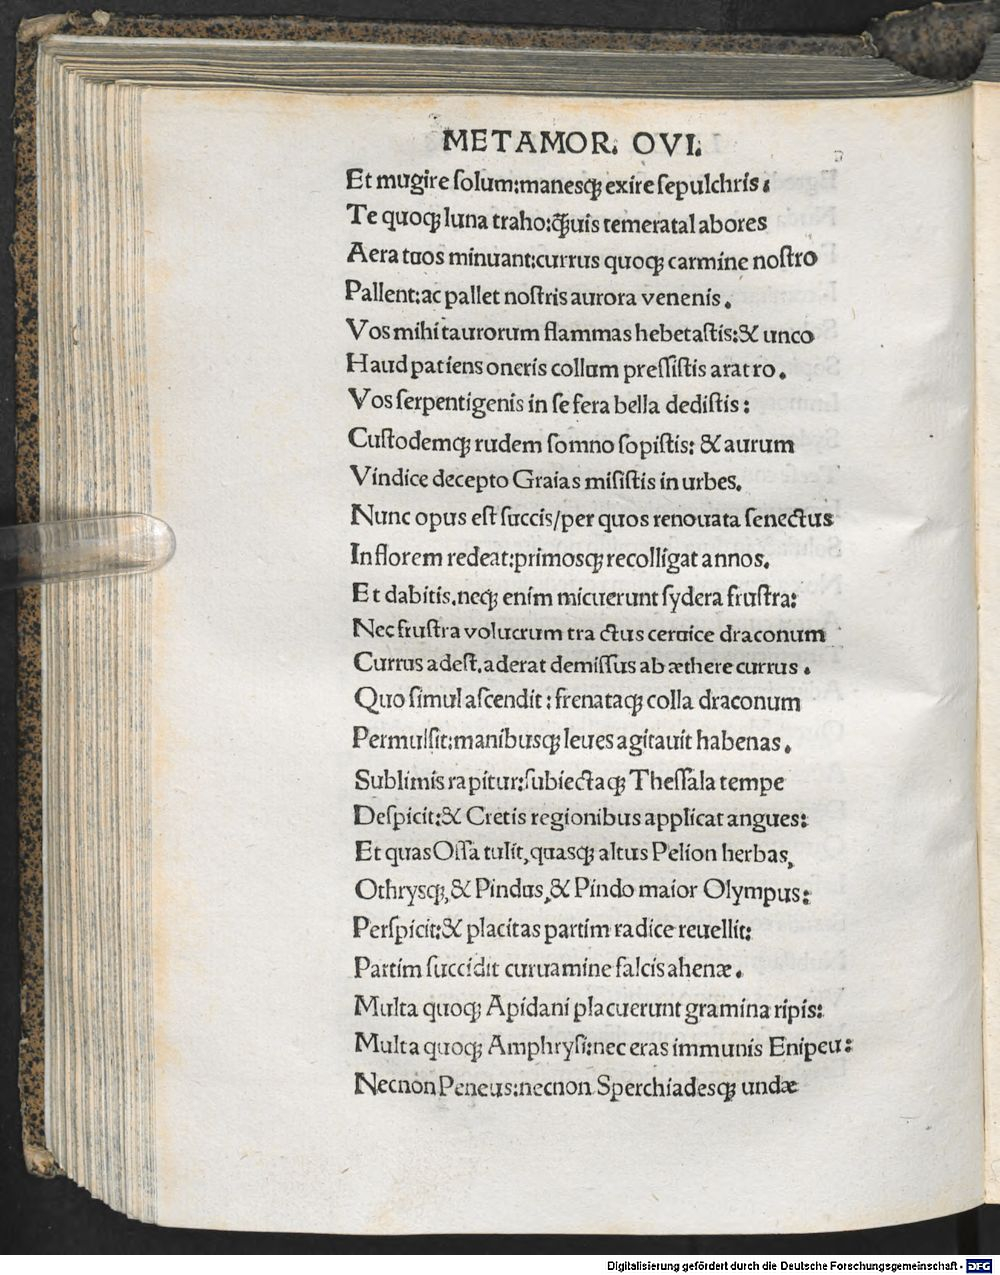 METAMOR. OVI.
Et mugire ſolum:manesqꝫ exire ſepulchris.
Te quoqꝫ luna traho:ꝙ̃uis temeratal abores
Aera tuos minuant:currus quoqꝫ carmine noſtro
Pallent:ac pallet noſtris aurora venenis.
Vos mihi taurorum flammas hebetaſtis:& unco
Haud patiens oneris collum preſſiſtis aratro.
Vos ſerpentigenis in ſe fera bella dediſtis:
Cuſtodemqꝫ rudem ſomno ſopiſtis: & aurum
Vindice decepto Graias miſiſtis in urbes.
Nunc opus eſt ſuccis/per quos renouata ſenectus
In florem redeat:primosqꝫ recolligat annos.
Et dabitis.neqꝫ enim micuerunt ſydera fruſtra:
Nec fruſtra volucrum tra ctus ceruice draconum
Currus adeſt.aderat demiſſus ab æthere currus.
Quo ſimul aſcendit: frenataqꝫ colla draconum
Permulſit:manibusqꝫ leues agitauit habenas.
Sublimis rapitur:ſubiectaqꝫ Theſſala tempe
Deſpicit:& Cretis regionibus applicat angues:
Et quas Oſſa tulit,quasqꝫ altus Pelion herbas,
Othrysqꝫ,& Pindus,& Pindo maior Olympus:
Perſpicit:& placitas partim radice reuellit:
Partim ſuccidit curuamine falcis ahenæ.
Multa quoqꝫ Apidani placuerunt gramina ripis:
Multa quoqꝫ Amphryſi:nec eras immunis Enipeu:
Necnon Peneus:necnon Sperchiadesqꝫ undæ
Digitalisierung gefördert durch die Deutsche Forschungsgemeinschaft - DFG